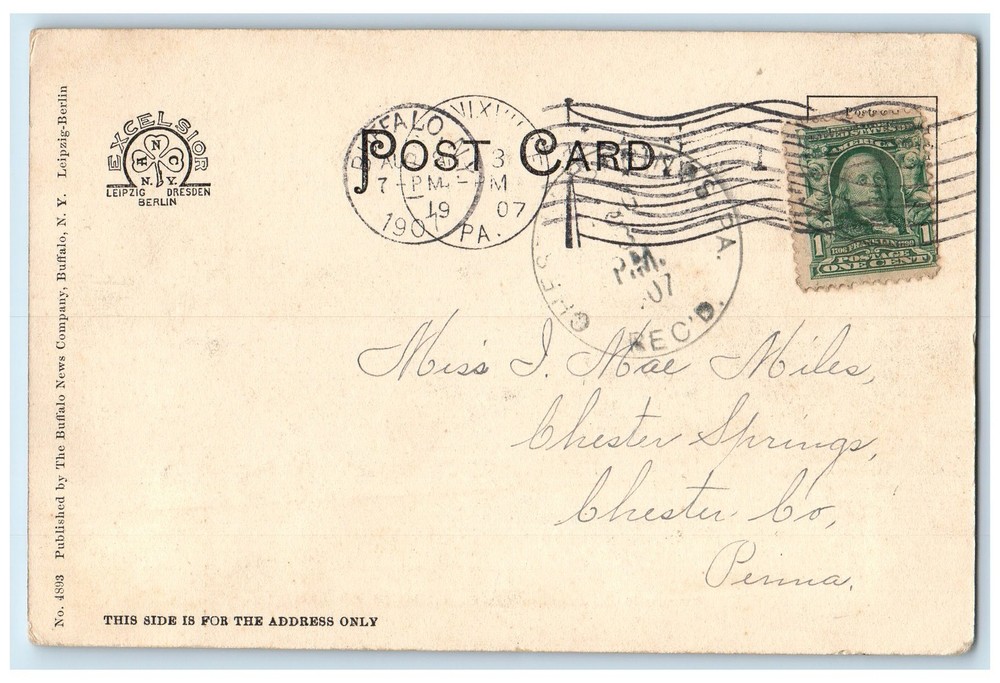 POST CARD
EXCELSIOR
N
C
N. Y.
LEIPZIG DRESDEN
BERLIN
BUFFALO, N.Y.
7-PM
190
3
M
19 07
PA.
1
CHES
S, PA.
P.M.
07
REC'D.
UNITED STATES OF
AMERICA
1706 FRANKLIN 1790
POSTAGE
1 ONE CENT
Miss I. Mae Miles,
Chester Springs,
Chester Co,
Penna.
THIS SIDE IS FOR THE ADDRESS ONLY
No. 4893 Published by The Buffalo News Company, Buffalo, N. Y. Leipzig-Berlin